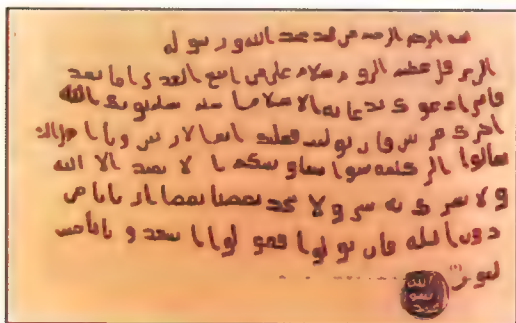 بسم الله الرحمن الرحيم من محمد عبد الله ورسوله
الى هرقل عظيم الروم سلام على من اتبع الهدى اما بعد
فانى ادعوك بدعاية الاسلام اسلم تسلم يوتك الله
اجرك مرتين فان توليت فعليك اثم الاريسين ويا اهل الك
تعالوا الى كلمة سوا بيننا وبينكم ان لا نعبد الا الله
ولا نشرك به ولا يتخذ بعضنا بعضا اربابا من
دون الله فان تولوا فقولوا اشهدوا بانا مسل
مون (1)
الله
رسول
محمد